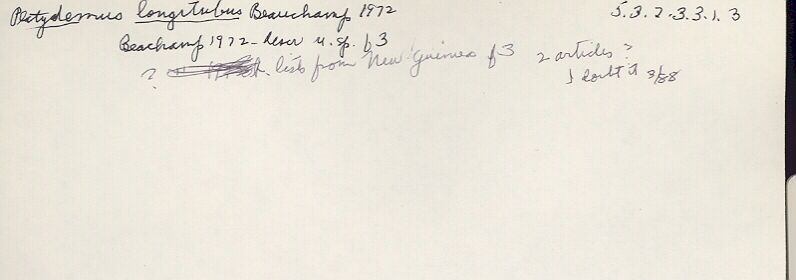 Platydemus longitubus Beauchamp 1972 5.3.2.3.3.1.3
Beachamp 1972 - descr n. sp. f3
? lists from New Guinea f3 2 articles?
I doubt it 8/88